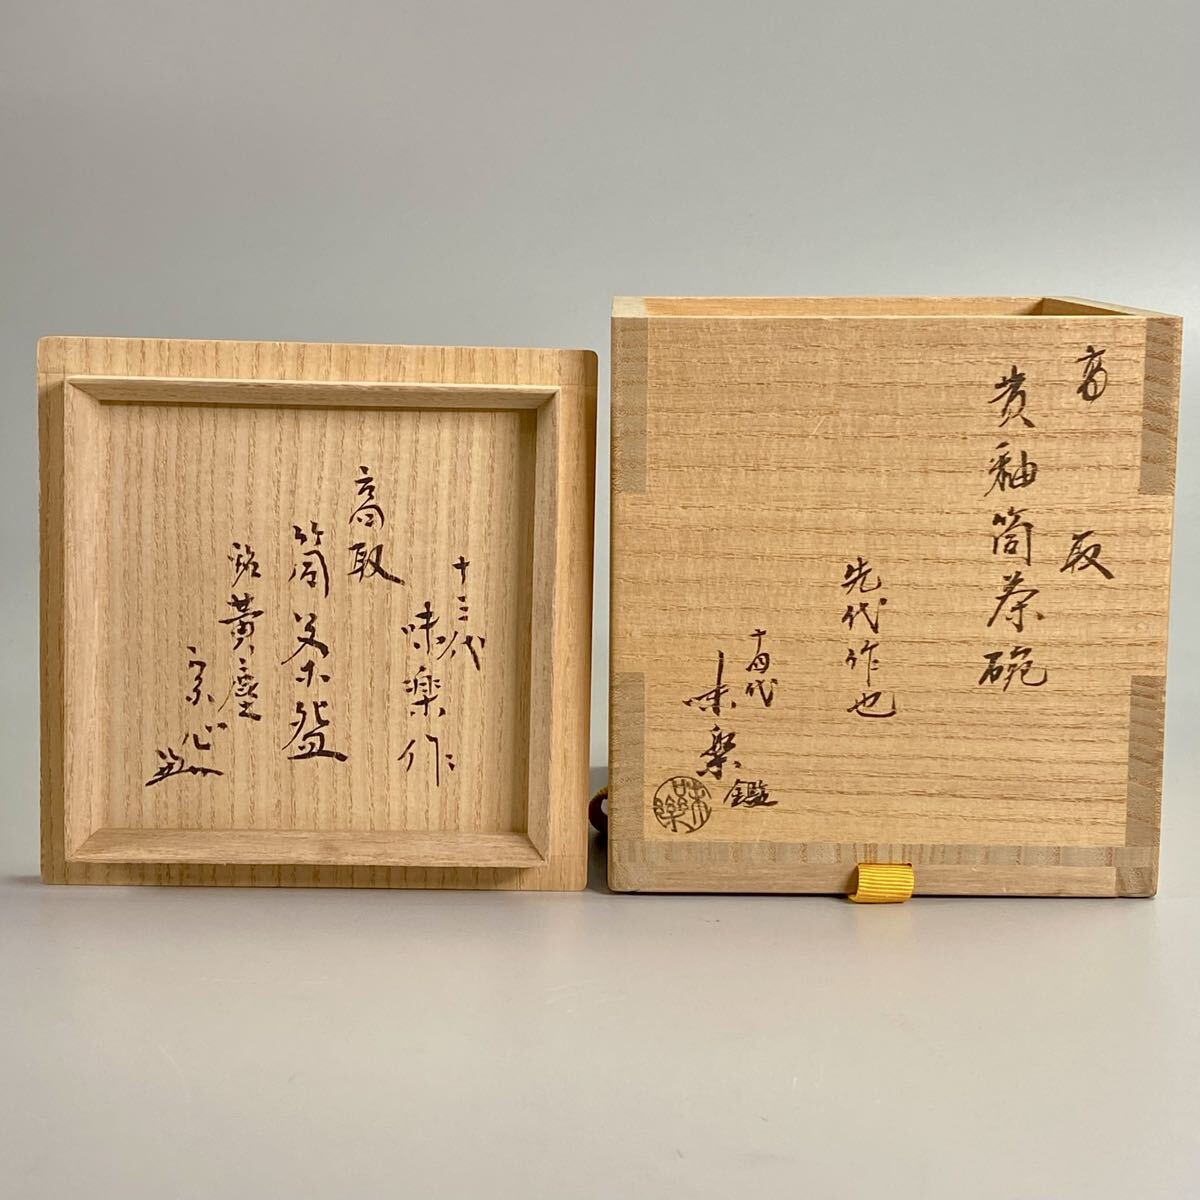 十三代
味楽作
高取
筒茶盌
銘黄塵
宗心
高取
黄釉筒茶碗
先代作也
十四代
味楽鑑
味樂